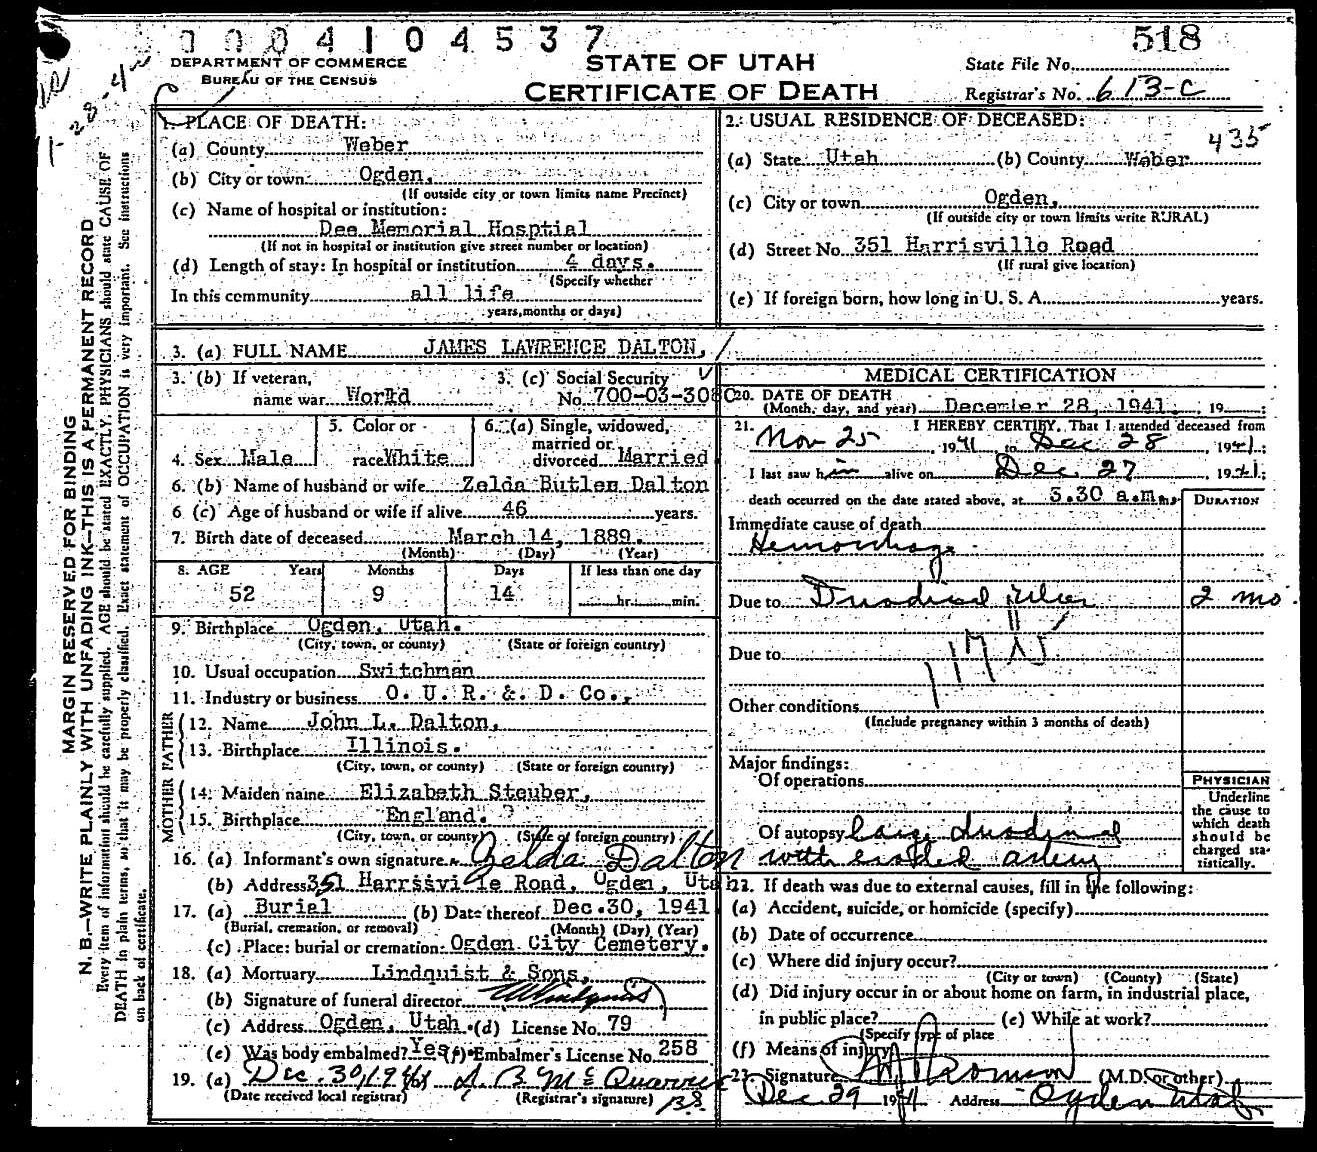 0004104537
518
DEPARTMENT OF COMMERCE
BUREAU OF THE CENSUS
STATE OF UTAH
CERTIFICATE OF DEATH
State File No.
Registrar's No. 613-C
11-28-4
MARGIN RESERVED FOR BINDING
N. B.—WRITE PLAINLY WITH UNFADING INK—THIS IS A PERMANENT RECORD
Every item of information should be carefully supplied. AGE should be stated EXACTLY. PHYSICIANS should state CAUSE OF
DEATH in plain terms, so that it may be properly classified. Exact statement of OCCUPATION is very important. See instructions
on back of certificate.
1. PLACE OF DEATH:
(a) County Weber
(b) City or town Ogden,
(If outside city or town limits name Precinct)
(c) Name of hospital or institution:
Dee Memorial Hosptial
(If not in hospital or institution give street number or location)
(d) Length of stay: In hospital or institution 4 days.
(Specify whether
In this community all life
years, months or days)
2. USUAL RESIDENCE OF DECEASED:
435
(a) State Utah (b) County Weber
(c) City or town Ogden,
(If outside city or town limits write RURAL)
(d) Street No. 351 Harrisville Road
(If rural give location)
(e) If foreign born, how long in U. S. A. years.
3. (a) FULL NAME JAMES LAWRENCE DALTON,
3. (b) If veteran, 3. (c) Social Security
name war World No. 700-03-308
4. Sex Male 5. Color or race White 6. (a) Single, widowed, married or divorced Married
6. (b) Name of husband or wife Zelda Butler Dalton
6 (c) Age of husband or wife if alive 46 years.
7. Birth date of deceased March 14, 1889.
(Month) (Day) (Year)
8. AGE Years Months Days If less than one day
52 9 14 hr. min.
9. Birthplace Ogden, Utah.
(City, town, or county) (State or foreign country)
10. Usual occupation Switchman
11. Industry or business O. U. R. & D. Co.,
FATHER
12. Name John L. Dalton,
13. Birthplace Illinois.
(City, town, or county) (State or foreign country)
MOTHER
14. Maiden name Elizabeth Steuber,
15. Birthplace England.
(City, town, or county) (State or foreign country)
16. (a) Informant's own signature Zelda Dalton
(b) Address 351 Harrisville Road, Ogden, Utah
17. (a) Burial (b) Date thereof Dec. 30, 1941
(Burial, cremation, or removal) (Month) (Day) (Year)
(c) Place: burial or cremation: Ogden City Cemetery.
18. (a) Mortuary Lindquist & Sons,
(b) Signature of funeral director
(c) Address Ogden, Utah. (d) License No. 79
(e) Was body embalmed? Yes (f) Embalmer's License No. 258
19. (a) Dec. 30, 1941
(Date received local registrar) (Registrar's signature)
MEDICAL CERTIFICATION
20. DATE OF DEATH
(Month, day, and year) December 28, 1941. , 19 ;
21. I HEREBY CERTIFY, That I attended deceased from
Nov 25 , 1941 to Dec 28 , 1941;
I last saw him alive on Dec 27 , 1941;
death occurred on the date stated above, at 3.30 a.m.
DURATION
Immediate cause of death
Hemorrhage
Due to Duodenal Ulcer 2 mo.
Due to
Other conditions
(Include pregnancy within 3 months of death)
Major findings:
Of operations
Of autopsy large duodenal
with eroded artery
PHYSICIAN
Underline
the cause to
which death
should be
charged sta-
tistically.
22. If death was due to external causes, fill in the following:
(a) Accident, suicide, or homicide (specify)
(b) Date of occurrence
(c) Where did injury occur?
(City or town) (County) (State)
(d) Did injury occur in or about home on farm, in industrial place,
in public place? (e) While at work?
(Specify type of place
(f) Means of injury
23. Signature (M.D. or other)
Dec 29 1941 Address Ogden Utah